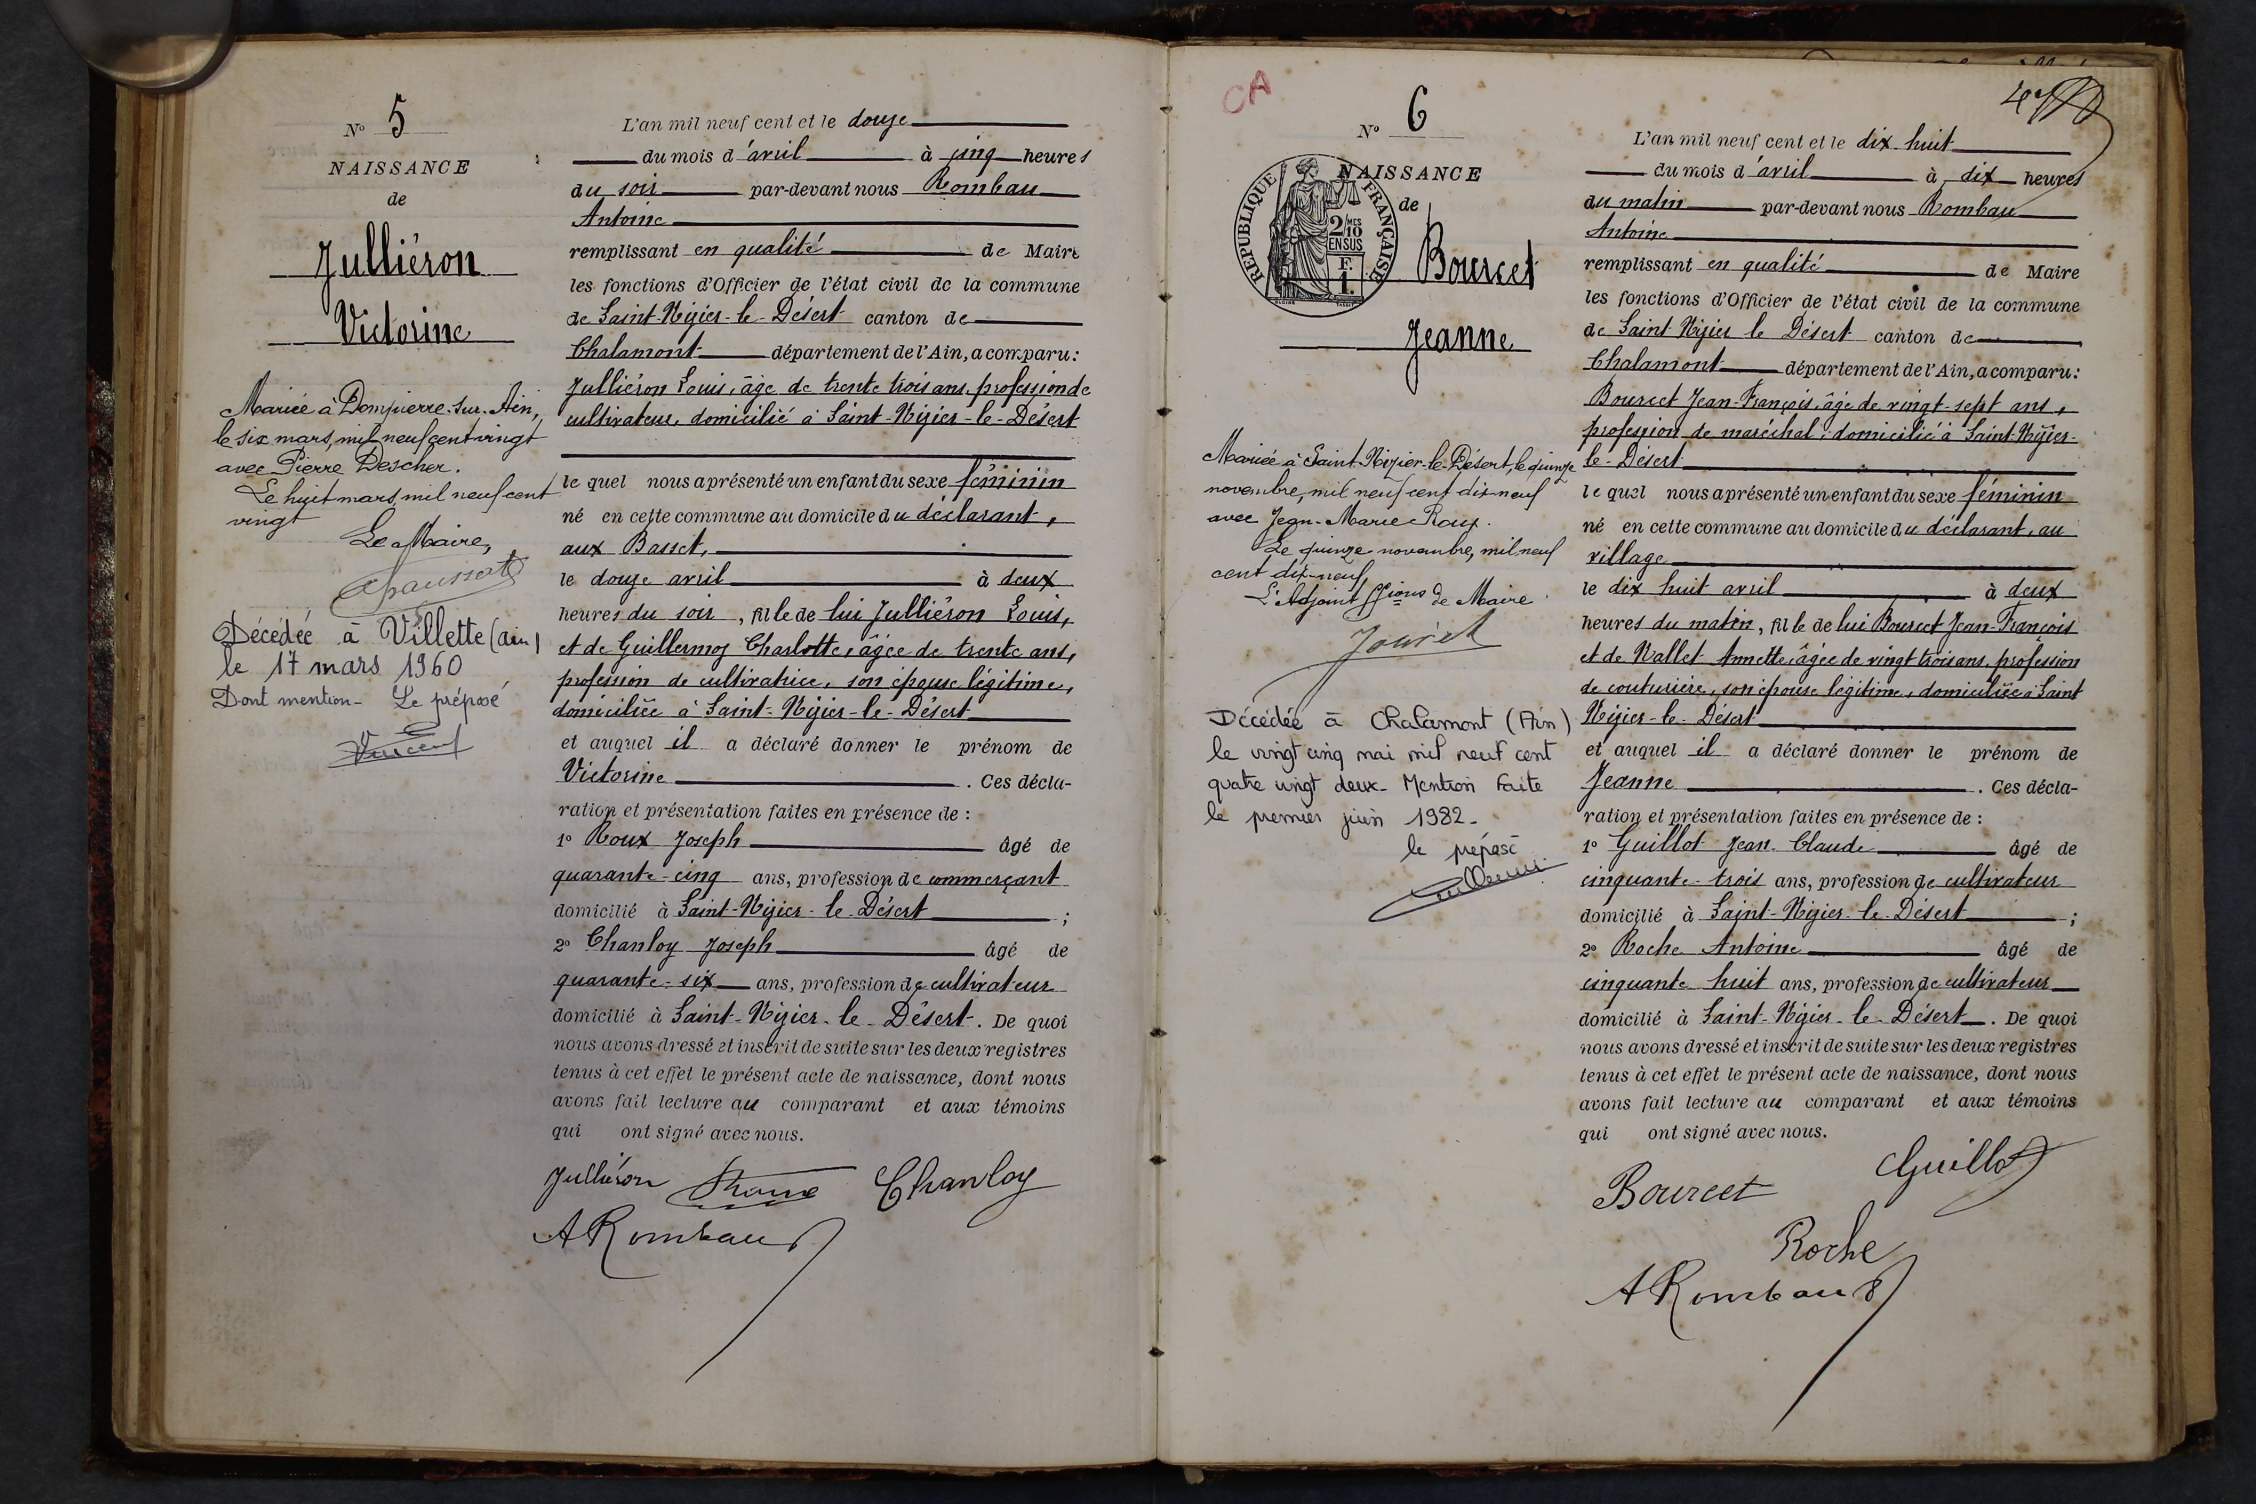 N° 5
NAISSANCE
de
Julliéron
Victorine
Mariée à Dompierre-sur-Ain,
le six mars, mil neuf cent vingt
avec Pierre Descher.
Le huit mars, mil neuf cent
vingt
Le Maire,
Décédée à Villette (ain)
le 17 mars 1960
Dont mention - Le préposé
Vincent
L'an mil neuf cent et le douze
du mois d'avril à cinq heures
du soir par-devant nous Rombau
Antoine
remplissant en qualité de Maire
les fonctions d'Officier de l'état civil de la commune
de Saint-Nizier-le-Désert canton de
Chalamont département de l'Ain, a comparu:
Julliéron Louis, âgé de trente trois ans, profession de
cultivateur, domicilié à Saint-Nizier-le-Désert
le quel nous a présenté un enfant du sexe féminin
né en cette commune au domicile du déclarant,
aux Basset,
le douze avril à deux
heures du soir, fille de lui Julliéron Louis,
et de Guillermoz Charlotte, âgée de trente ans,
profession de cultivatrice, son épouse légitime,
domiciliée à Saint-Nizier-le-Désert
et auquel il a déclaré donner le prénom de
Victorine. Ces décla-
ration et présentation faites en présence de :
1° Roux Joseph âgé de
quarante-cinq ans, profession de commerçant
domicilié à Saint-Nizier-le-Désert ;
2° Chanloy Joseph âgé de
quarante-six ans, profession de cultivateur
domicilié à Saint-Nizier-le-Désert. De quoi
nous avons dressé et inscrit de suite sur les deux registres
tenus à cet effet le présent acte de naissance, dont nous
avons fait lecture au comparant et aux témoins
qui ont signé avec nous.
Julliéron Chanloy
A Rombau
CA
N° 6
NAISSANCE
de
RÉPUBLIQUE FRANÇAISE
2/10 MES
EN SUS
F.
1.
Bourcet
Jeanne
Mariée à Saint-Nizier-le-Désert, le quinze
novembre, mil neuf cent dix-neuf
avec Jean-Marie Roux.
Le quinze novembre, mil neuf
cent dix-neuf,
L'Adjoint ffions de Maire
Décédée à Chalamont (Ain)
le vingt cinq mai mil neuf cent
quatre vingt deux - Mention faite
le premier juin 1982 -
le préposé
4e
L'an mil neuf cent et le dix-huit
du mois d'avril à dix heures
du matin par-devant nous Rombau
Antoine
remplissant en qualité de Maire
les fonctions d'Officier de l'état civil de la commune
de Saint Nizier le Désert canton de
Chalamont département de l'Ain, a comparu:
Bourcet Jean-François, âgé de vingt-sept ans,
profession de maréchal, domicilié à Saint-Nizier-
le-Désert
le quel nous a présenté un enfant du sexe féminin
né en cette commune au domicile du déclarant, au
village
le dix huit avril à deux
heures du matin, fille de lui Bourcet Jean-François
et de Vallet Annette, âgée de vingt trois ans, profession
de couturière, son épouse légitime, domiciliée à Saint
Nizier-le-Désert
et auquel il a déclaré donner le prénom de
Jeanne. Ces décla-
ration et présentation faites en présence de :
1° Guillot Jean-Claude âgé de
cinquante-trois ans, profession de cultivateur
domicilié à Saint-Nizier-le-Désert ;
2° Roche Antoine âgé de
cinquante huit ans, profession de cultivateur
domicilié à Saint-Nizier-le-Désert. De quoi
nous avons dressé et inscrit de suite sur les deux registres
tenus à cet effet le présent acte de naissance, dont nous
avons fait lecture au comparant et aux témoins
qui ont signé avec nous.
Guillot
Bourcet
Roche
A Rombau